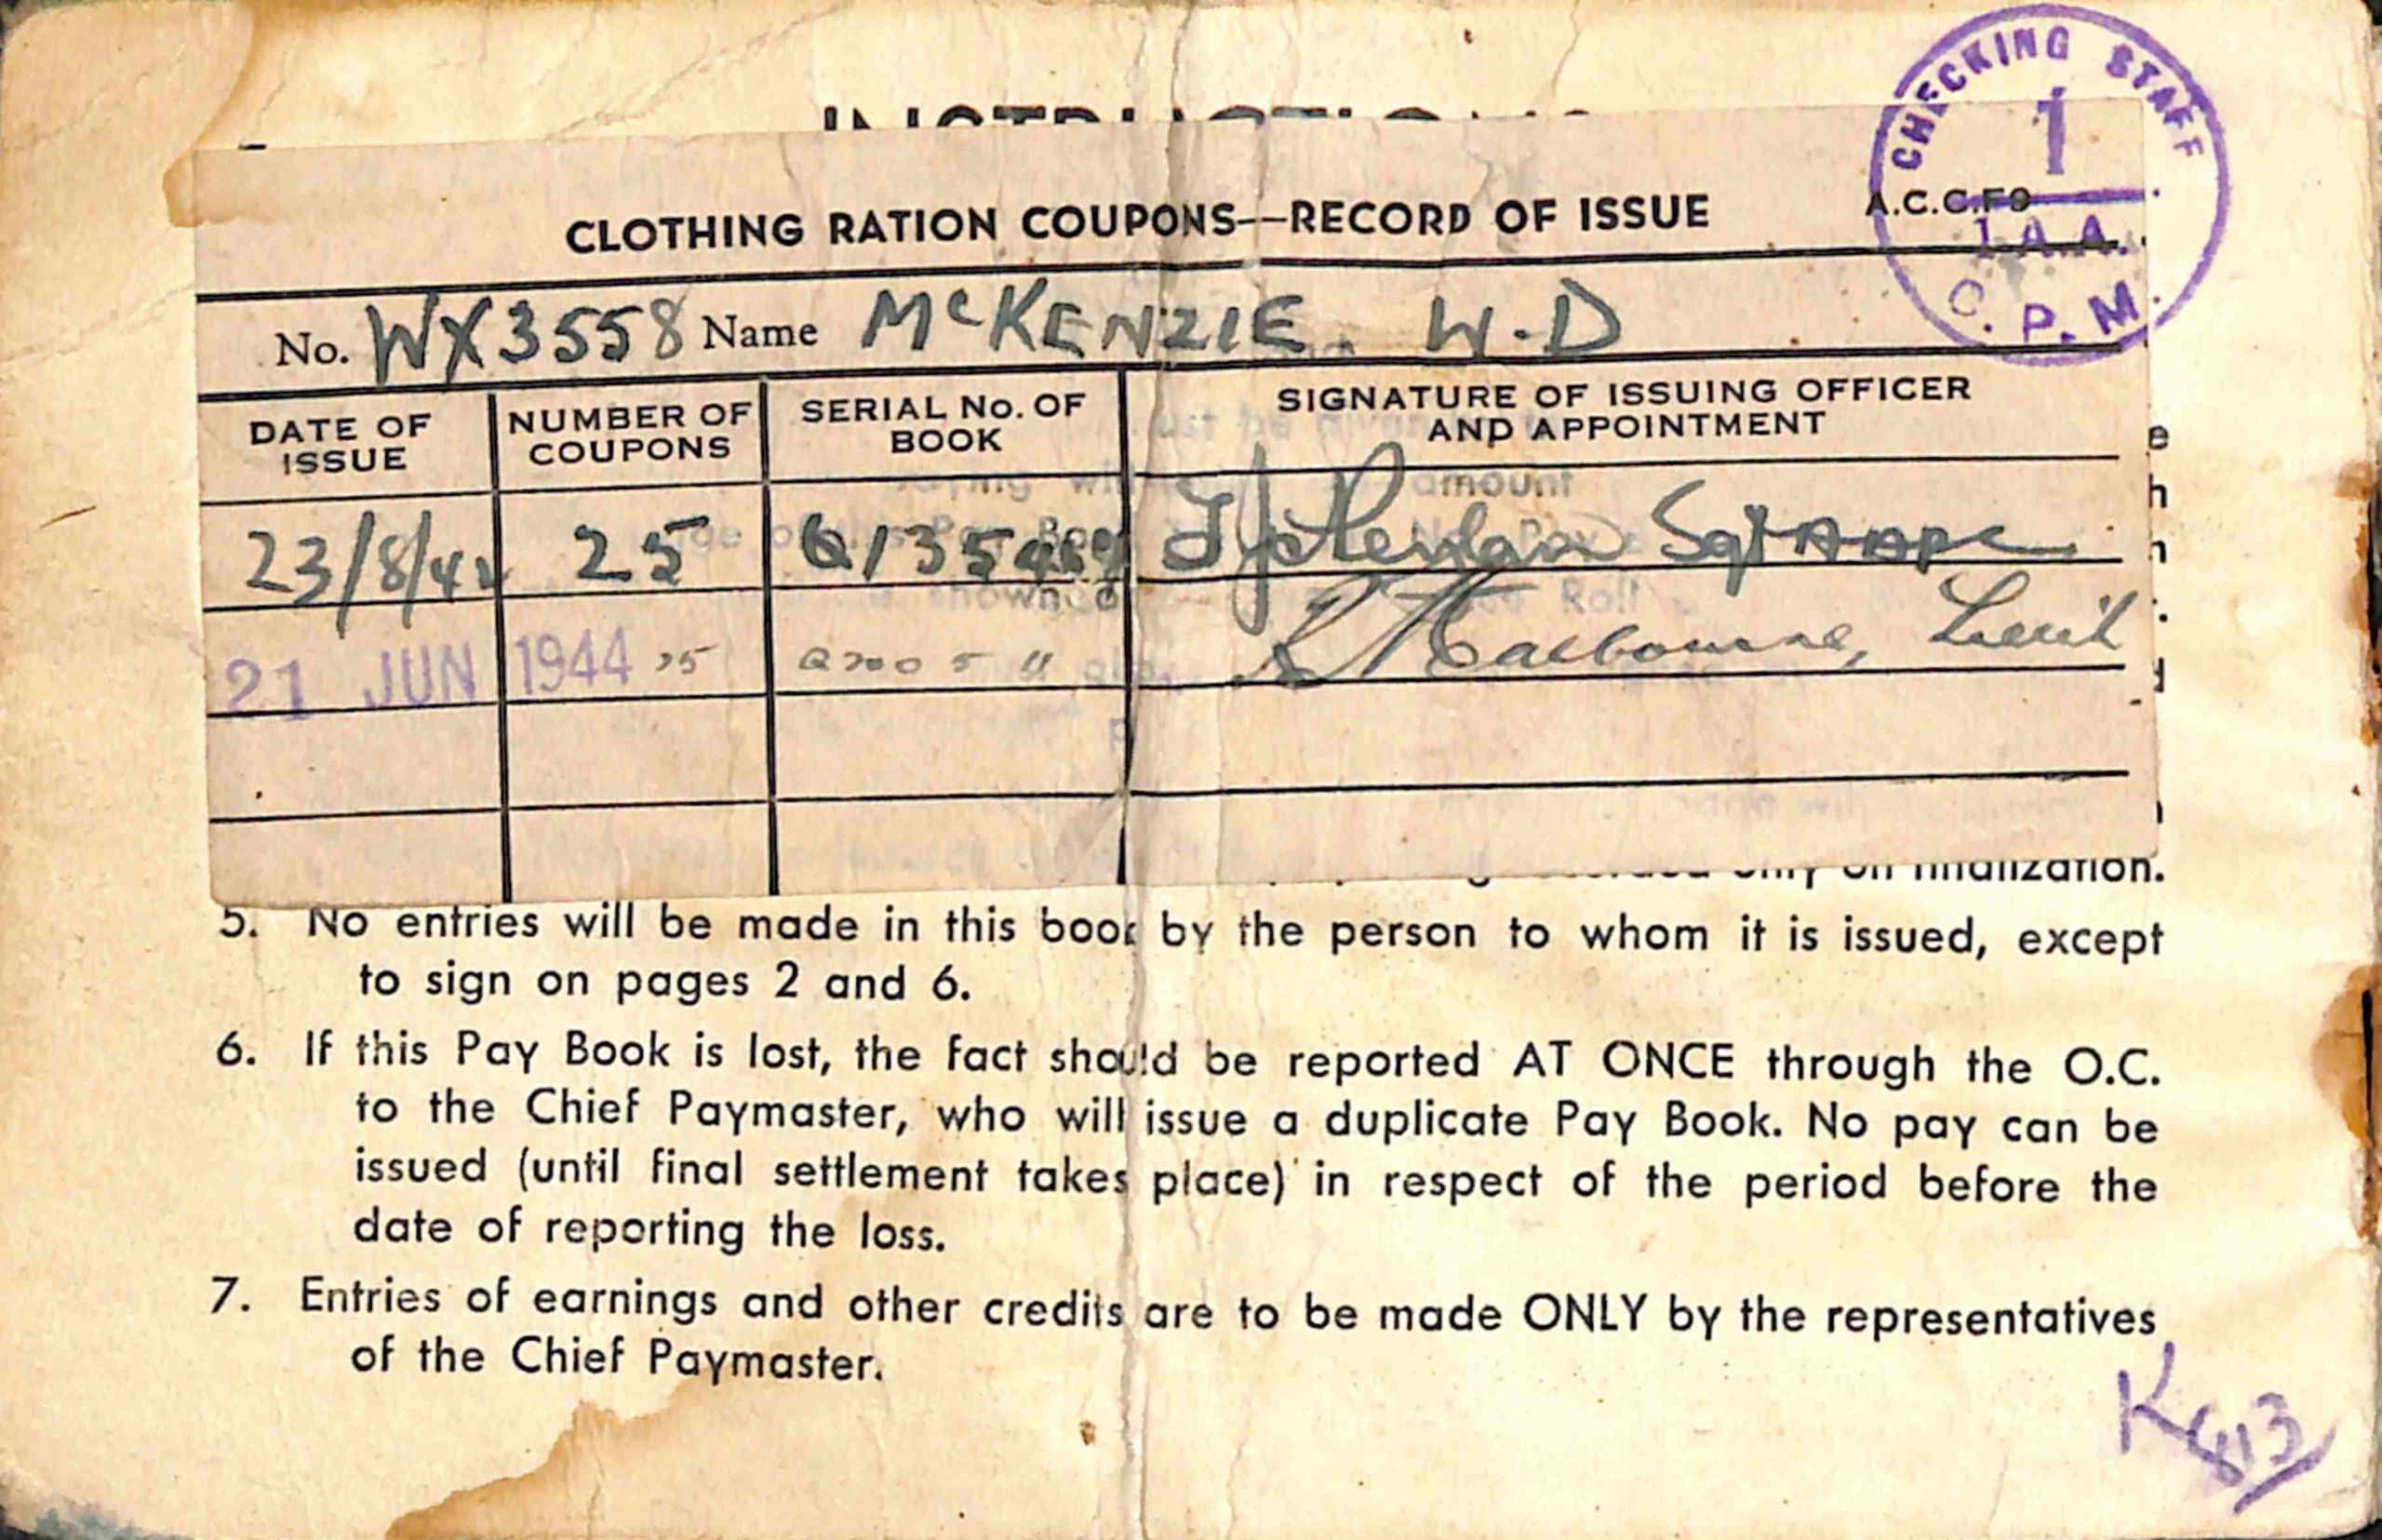 CHECKING STAFF
1
1 A.A.
C. P. M.
CLOTHING RATION COUPONS—RECORD OF ISSUE
A.C.C.F9
No. WX3558 Name McKENZIE W.D
DATE OF ISSUE NUMBER OF COUPONS SERIAL No. OF BOOK SIGNATURE OF ISSUING OFFICER AND APPOINTMENT
25
21 JUN 1944 Lieut
only on finalization.
5. No entries will be made in this book by the person to whom it is issued, except
to sign on pages 2 and 6.
6. If this Pay Book is lost, the fact should be reported AT ONCE through the O.C.
to the Chief Paymaster, who will issue a duplicate Pay Book. No pay can be
issued (until final settlement takes place) in respect of the period before the
date of reporting the loss.
7. Entries of earnings and other credits are to be made ONLY by the representatives
of the Chief Paymaster.